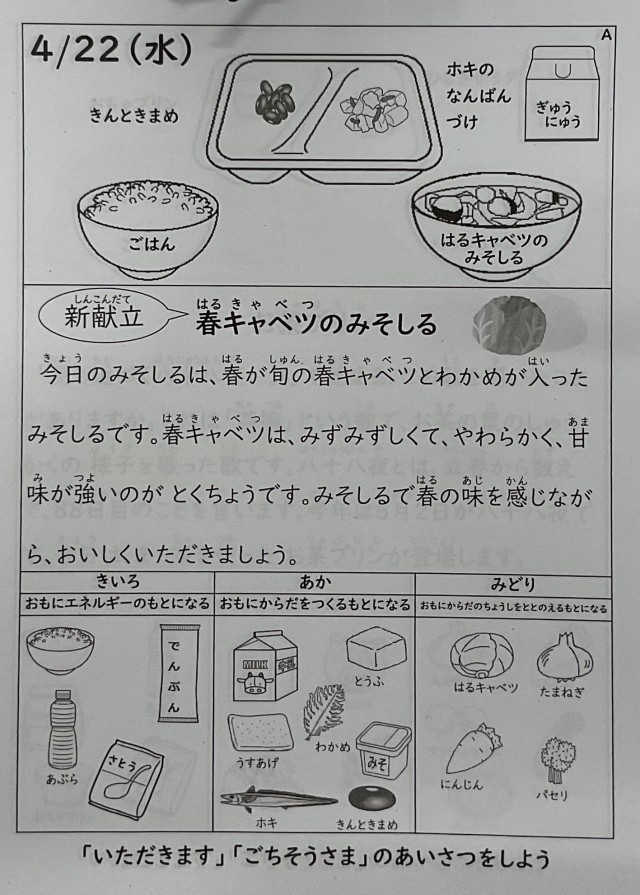 4/22(水)
A
きんときまめ
ホキの
なんばん
づけ
ぎゅう
にゅう
ごはん
はるキャベツの
みそしる
しんこんだて
新献立
はるきゃべつ
春キャベツのみそしる
きょう はる しゅん はるきゃべつ はい
今日のみそしるは、春が旬の春キャベツとわかめが入った
はるきゃべつ あま
みそしるです。春キャベツは、みずみずしくて、やわらかく、甘
み つよ はる あじ かん
味が強いのが とくちょうです。みそしるで春の味を感じなが
ら、おいしくいただきましょう。
きいろ
おもにエネルギーのもとになる
でんぷん
あぶら
さとう
あか
おもにからだをつくるもとになる
MILK
とうふ
わかめ
うすあげ
みそ
ホキ
きんときまめ
みどり
おもにからだのちょうしをととのえるもとになる
はるキャベツ
たまねぎ
にんじん
パセリ
「いただきます」「ごちそうさま」のあいさつをしよう